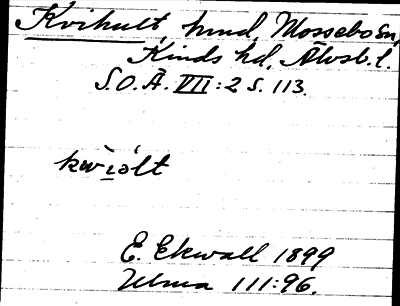 Kvihult, hmd, Mossebo sn,
Kinds hd, Älvsb. l.
S.O.Ä. VII:2 S. 113.
E. Ekwall 1899
Ulma 111:96.